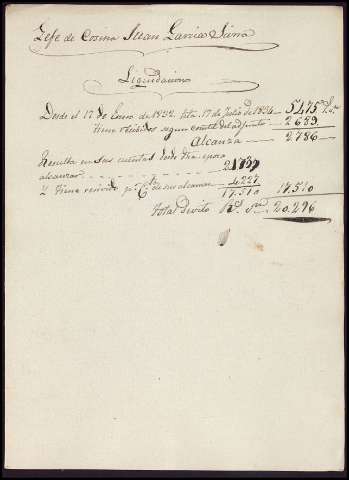 Zefe de Cosina Juan Garcia Sierra
Liquidacion
Desde el 17 de Enero de 1832 hta 17 de Julio de 1834 5475
tiene recibidos segun consta del adjunto 2689
Alcanza 2786
Resulta en sus cuentas desde dha epoca
alcanzar 21737
Y tiene recivido p. Cta de su alcance 4227
17.510 17.510
total devito Rs. Vn. 20.296